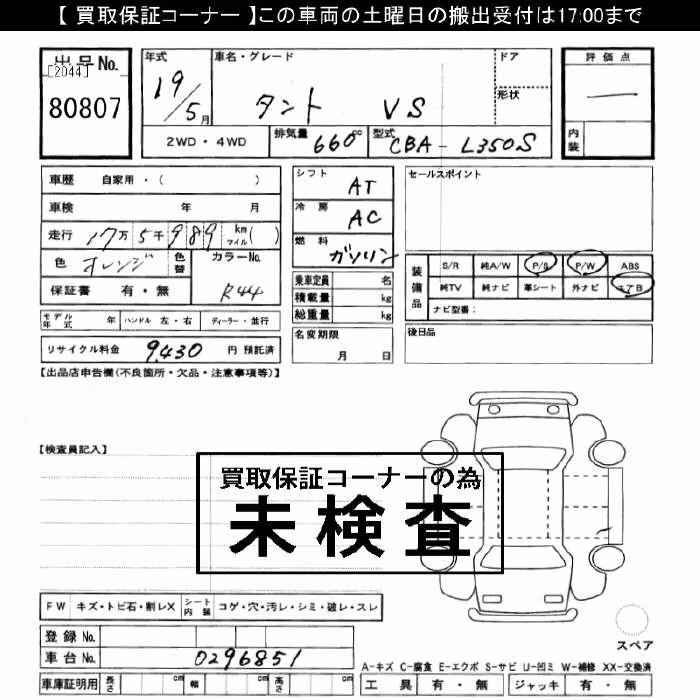 【 買取保証コーナー 】この車両の土曜日の搬出受付は17:00まで
出品No.
[2044]
80807
年式
19/5月
車名・グレード
タント VS
ドア
形状
評価点
—
内装
2WD・4WD
排気量 660cc
型式 CBA-L350S
車歴 自家用・( )
車検 年 月
走行 17万5千989 km マイル( )
色 オレンジ
色替
カラーNo.
R44
保証書 有・無
シフト AT
冷房 AC
燃料 ガソリン
乗車定員 名
積載量 kg
総重量 kg
名変期限
月 日
セールスポイント
装備品
S/R 純A/W P/S P/W ABS
純TV 純ナビ 革シート 外ナビ エアB
ナビ型番:
後日品
モデル年式 年 ハンドル 左・右 ディーラー・並行
リサイクル料金 9,430 円 預託済
【出品店申告欄(不良箇所・欠品・注意事項等)】
【検査員記入】
買取保証コーナーの為
未検査
FW キズ・トビ石・割レX シート内装 コゲ・穴・汚レ・シミ・破レ・スレ
登録 No.
車台 No. 0296851
スペア
A-キズ C-腐食 E-エクボ S-サビ U-凹ミ W-補修 XX-交換済
車庫証明用 長さ cm 幅 cm 高さ cm
工具 有・無 ジャッキ 有・無